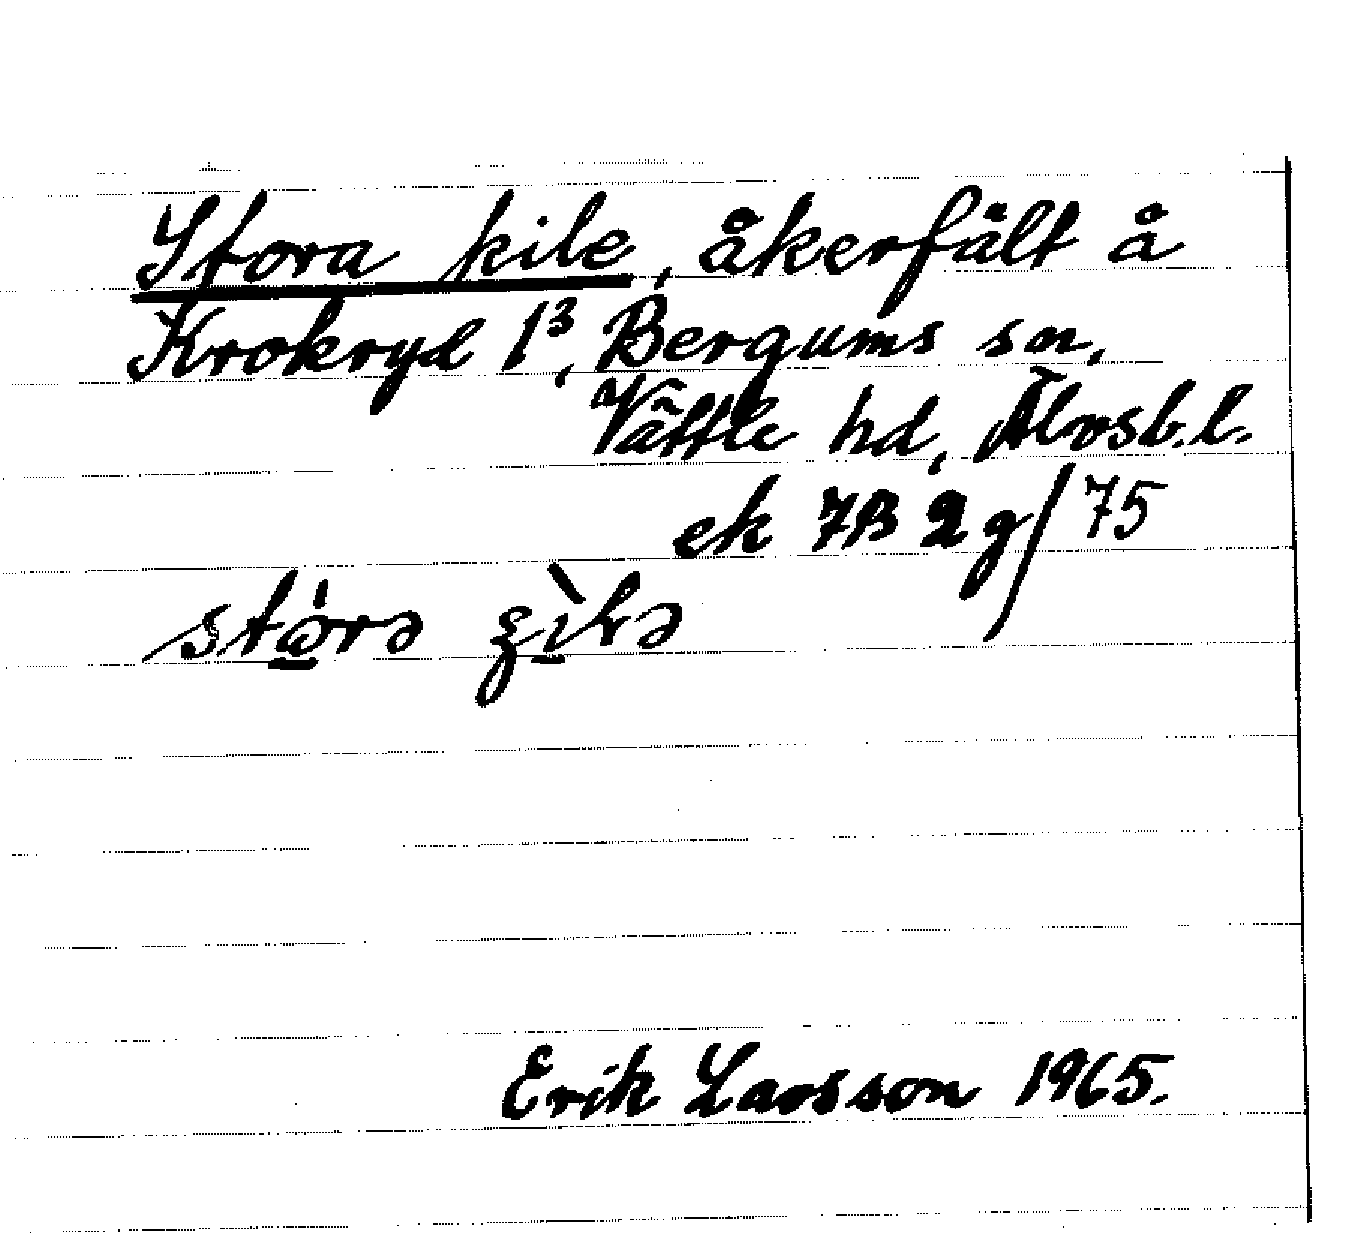 Stora kile, åkerfält å
Krokryd 1³, Bergums sn,
Vättle hd, Älvsb.l.
ek 7B 2g/75
Erik Larsson 1965.